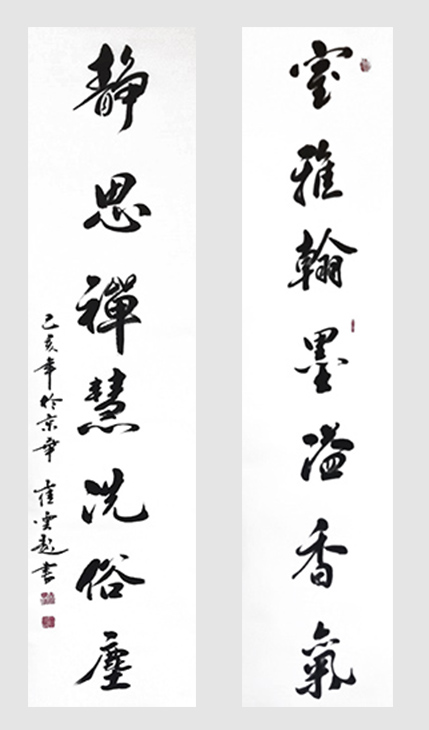 室雅翰墨溢香氣
靜思禪慧洗俗塵
己亥年於京華 崔雲彪書